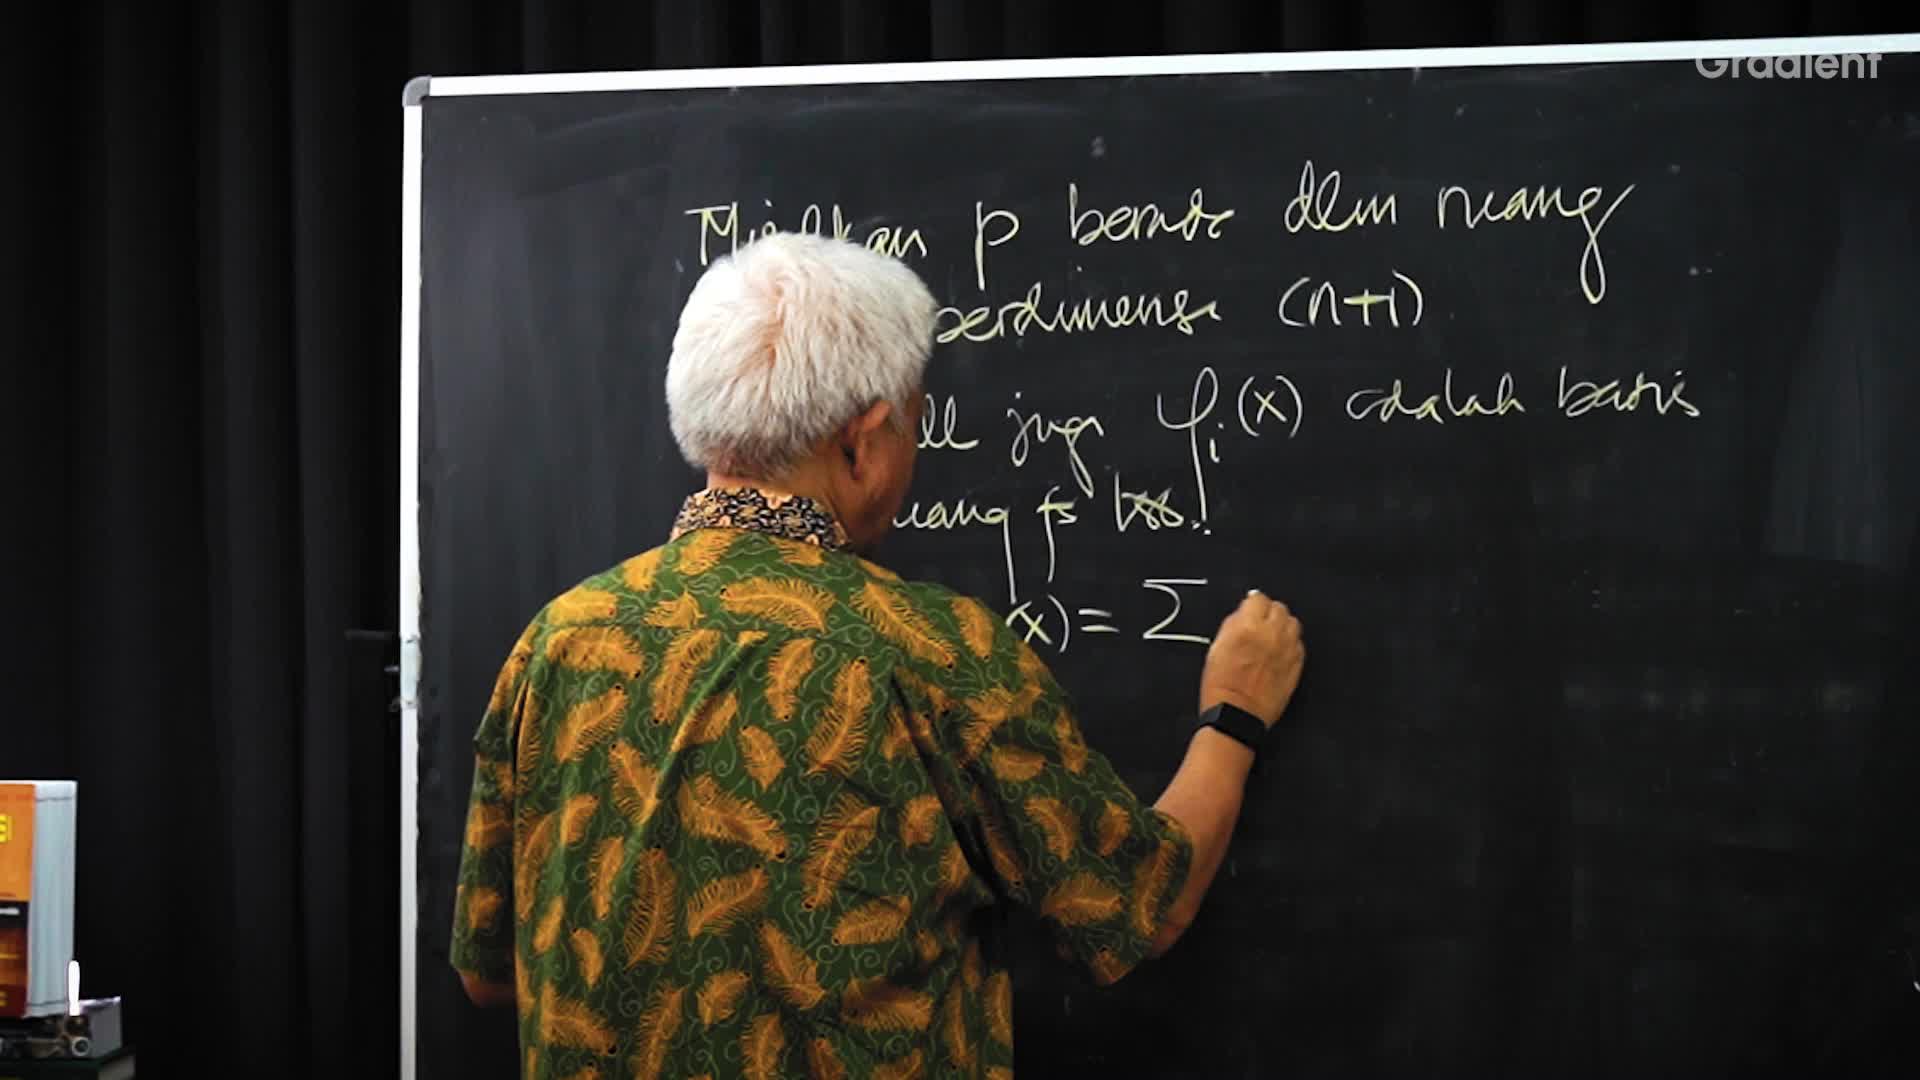 Gradient
Misalkan p berada dlm ruang
berdimensi (n+1)
juga φi(x) adalah basis
ruang fs
x) = Σ